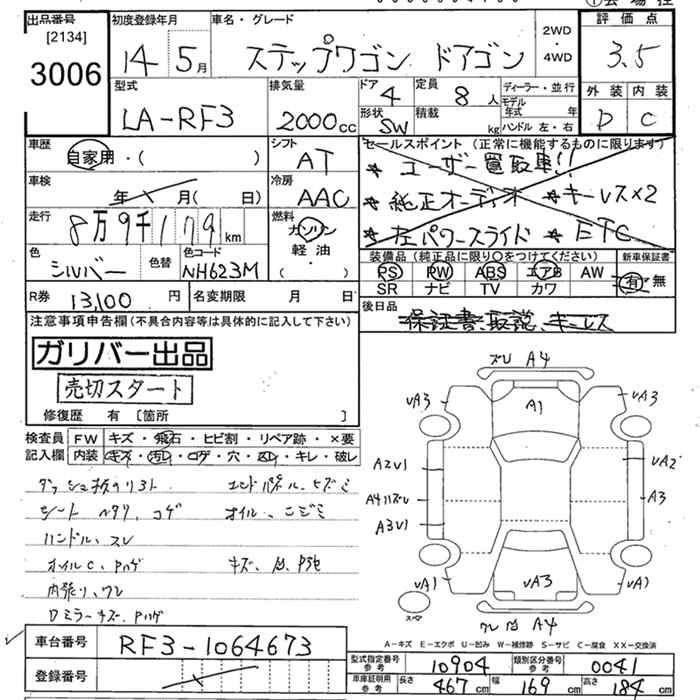 出品番号
[2134]
3006
初度登録年月
14年5月
車名・グレード
ステップワゴン ドアゴン
2WD
・
4WD
評価点
3.5
外装 内装
D C
型式
LA-RF3
排気量
2000cc
ドア
4
定員
8人
形状
SW
積載
kg
ディーラー・並行
モデル
年式 年
ハンドル 左・右
車歴
自家用・( )
シフト
AT
車検
年 月(日)
冷房
AAC
走行
8万9千179km
燃料
ガソリン
軽油
( )
色
シルバー
色替
色コード
NH623M
R券
13,100円
名変期限 月 日
セールスポイント(正常に機能するものに限ります)
★ユーザー買取車!!
★純正オーディオ ★キーレス×2
★左パワースライド ★ETC
装備品(純正品に限り○をつけてください)
PS PW ABS エアB AW
SR ナビ TV カワ
新車保証書
有・無
後日品
保証書、取説、キーレス
注意事項申告欄(不具合内容等は具体的に記入して下さい)
ガリバー出品
売切スタート
修復歴 有[箇所 ]
検査員
記入欄
FW キズ・飛石・ヒビ割・リペア跡・×要
内装 キズ・汚レ・コゲ・穴・スレ・キレ・破レ
シート ヘタリ、コゲ
オイル、ニジミ
ハンドル、スレ
内張り、ワレ
ズレ A4
UA3
A1
UA3
A2U1
UA2
A3
A3U1
UA1
UA3
UA1
スペア
A4
A-キズ E-エクボ U-凹み W-補修跡 S-サビ C-腐食 XX-交換済
車台番号
RF3-1064673
登録番号
型式指定番号
参考
10904
類別区分番号
参考
0041
車庫証明用
参考
長さ 467cm
幅 169cm
高さ 184cm